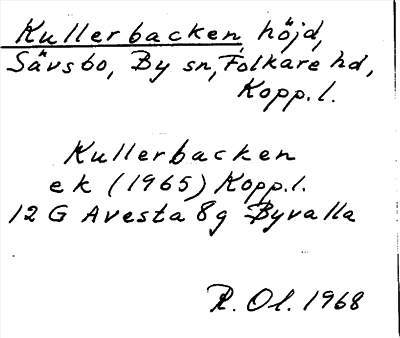 Kullerbacken, höjd,
Sävsbo, By sn, Folkare hd,
Kopp.l.
Kullerbacken
ek (1965) Kopp.l.
12 G Avesta 8g Byvalla
R. Ol. 1968